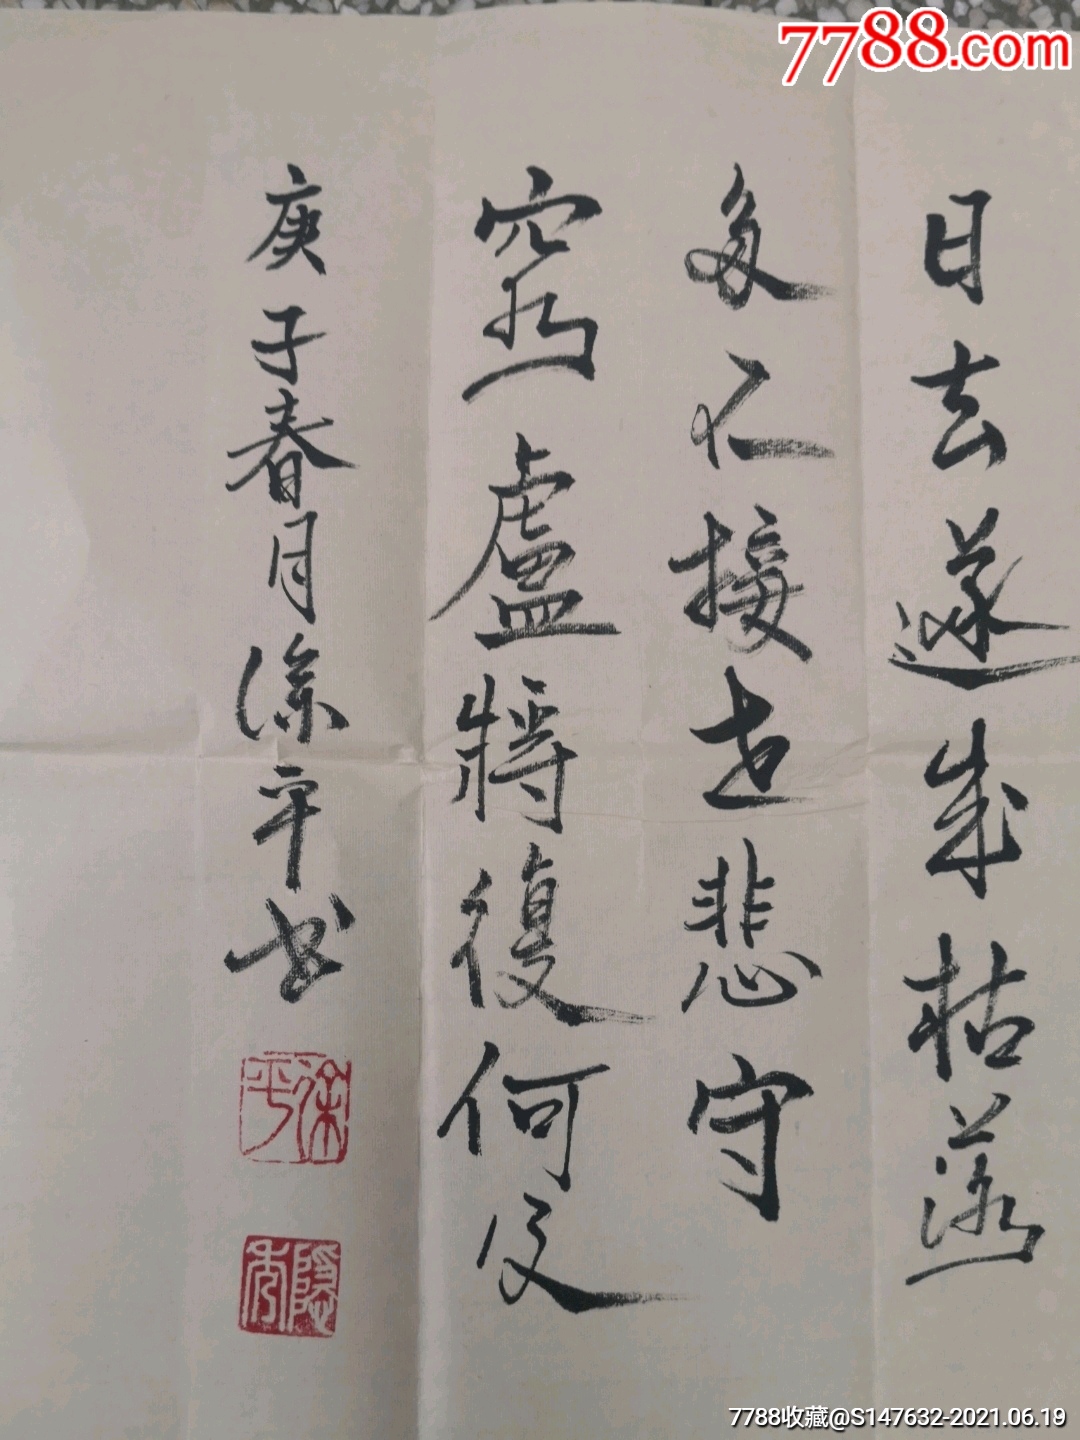 7788.com
日去遂成枯落
多不接世悲守
窮盧將復何及
庚子春月徐平书
徐平
7788收藏@S147632-2021.06.19